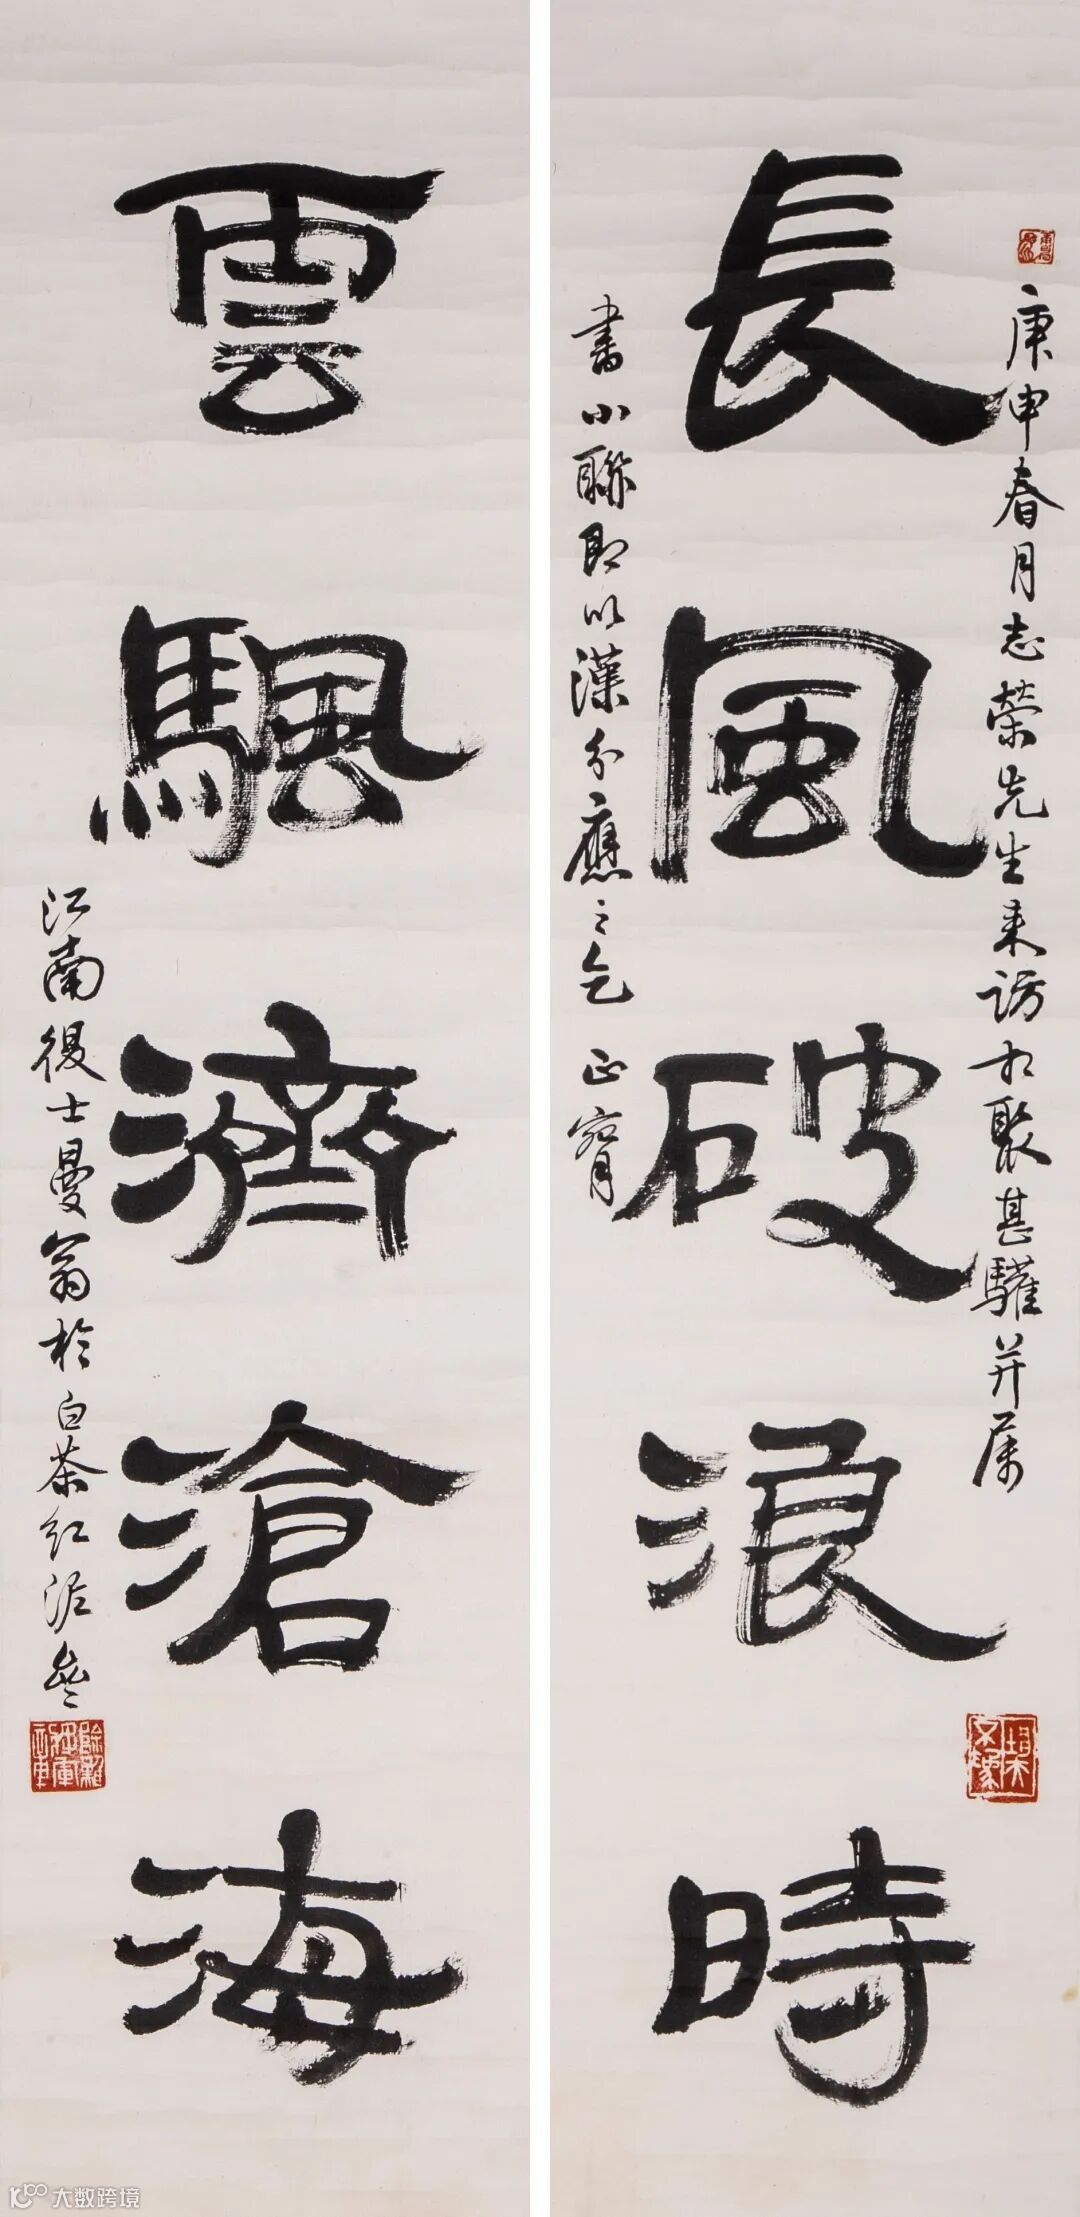 長風破浪時
庚申春月志榮先生来訪相聚甚驩并属
書小聯即以漢分應之乞正腕
雲颿濟滄海
江南後士曼翁於白茶红泥盦
大数跨境